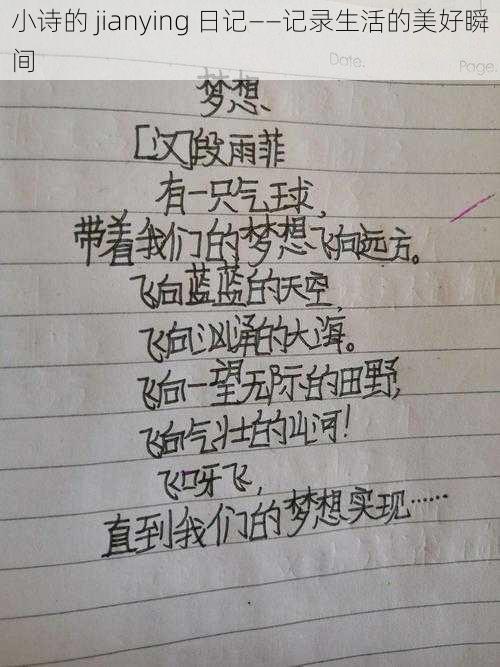 小诗的 jianying 日记——记录生活的美好瞬
间
Date
Page.
梦想
[汉]段雨菲
有一只气球，
带着我们的梦想飞向远方。
飞向蓝蓝的天空，
飞向汹涌的大海。
飞向一望无际的田野，
飞向气壮的山河！
飞呀飞，
直到我们的梦想实现……